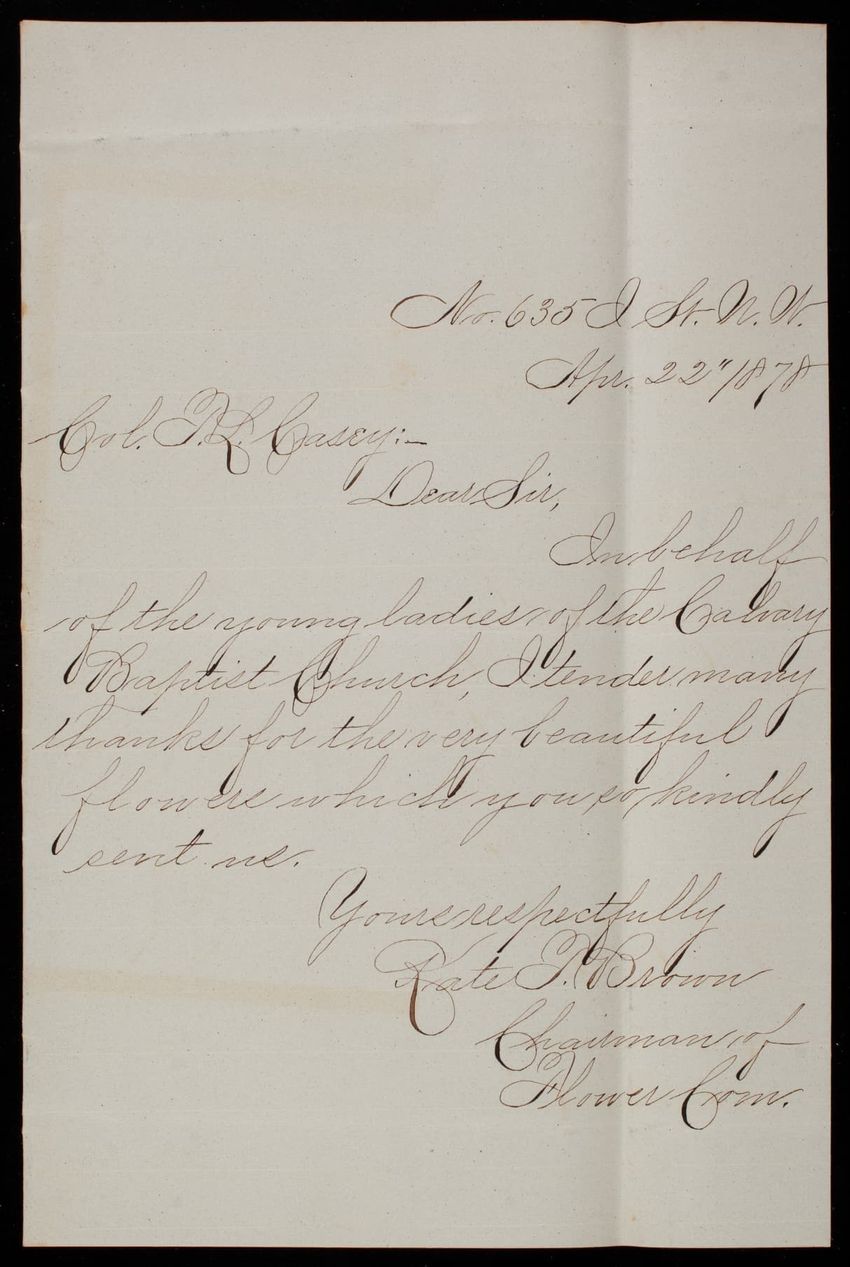 No. 635 I St. N. W.
Apr. 22"/1878
Col. T. L. Casey:-
Dear Sir,
In behalf
of the young ladies of the Calvary
Baptist Church, I tender many
thanks for the very beautiful
flowers which you so kindly
sent us.
Yours respectfully
Kate T. Brown
Chairman of
Flower Com.